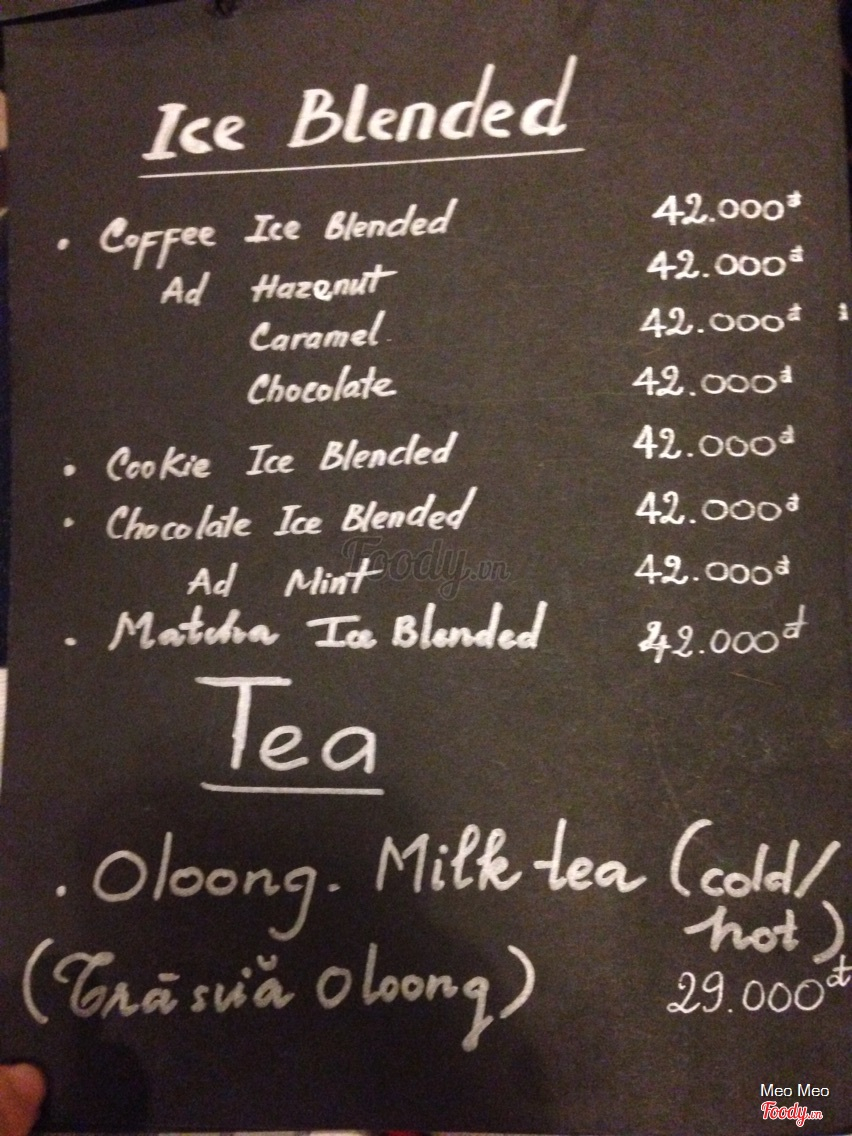 Ice Blended
• Coffee Ice Blended 42.000đ
Ad Hazenut 42.000đ
Caramel 42.000đ
Chocolate 42.000đ
• Cookie Ice Blended 42.000đ
• Chocolate Ice Blended 42.000đ
Foody.vn
Ad Mint 42.000đ
• Matcha Ice Blended 42.000đ
Tea
. Oloong. Milk tea (cold/
hot)
(Trà sữa Oloong) 29.000đ
Meo Meo
Foody.vn